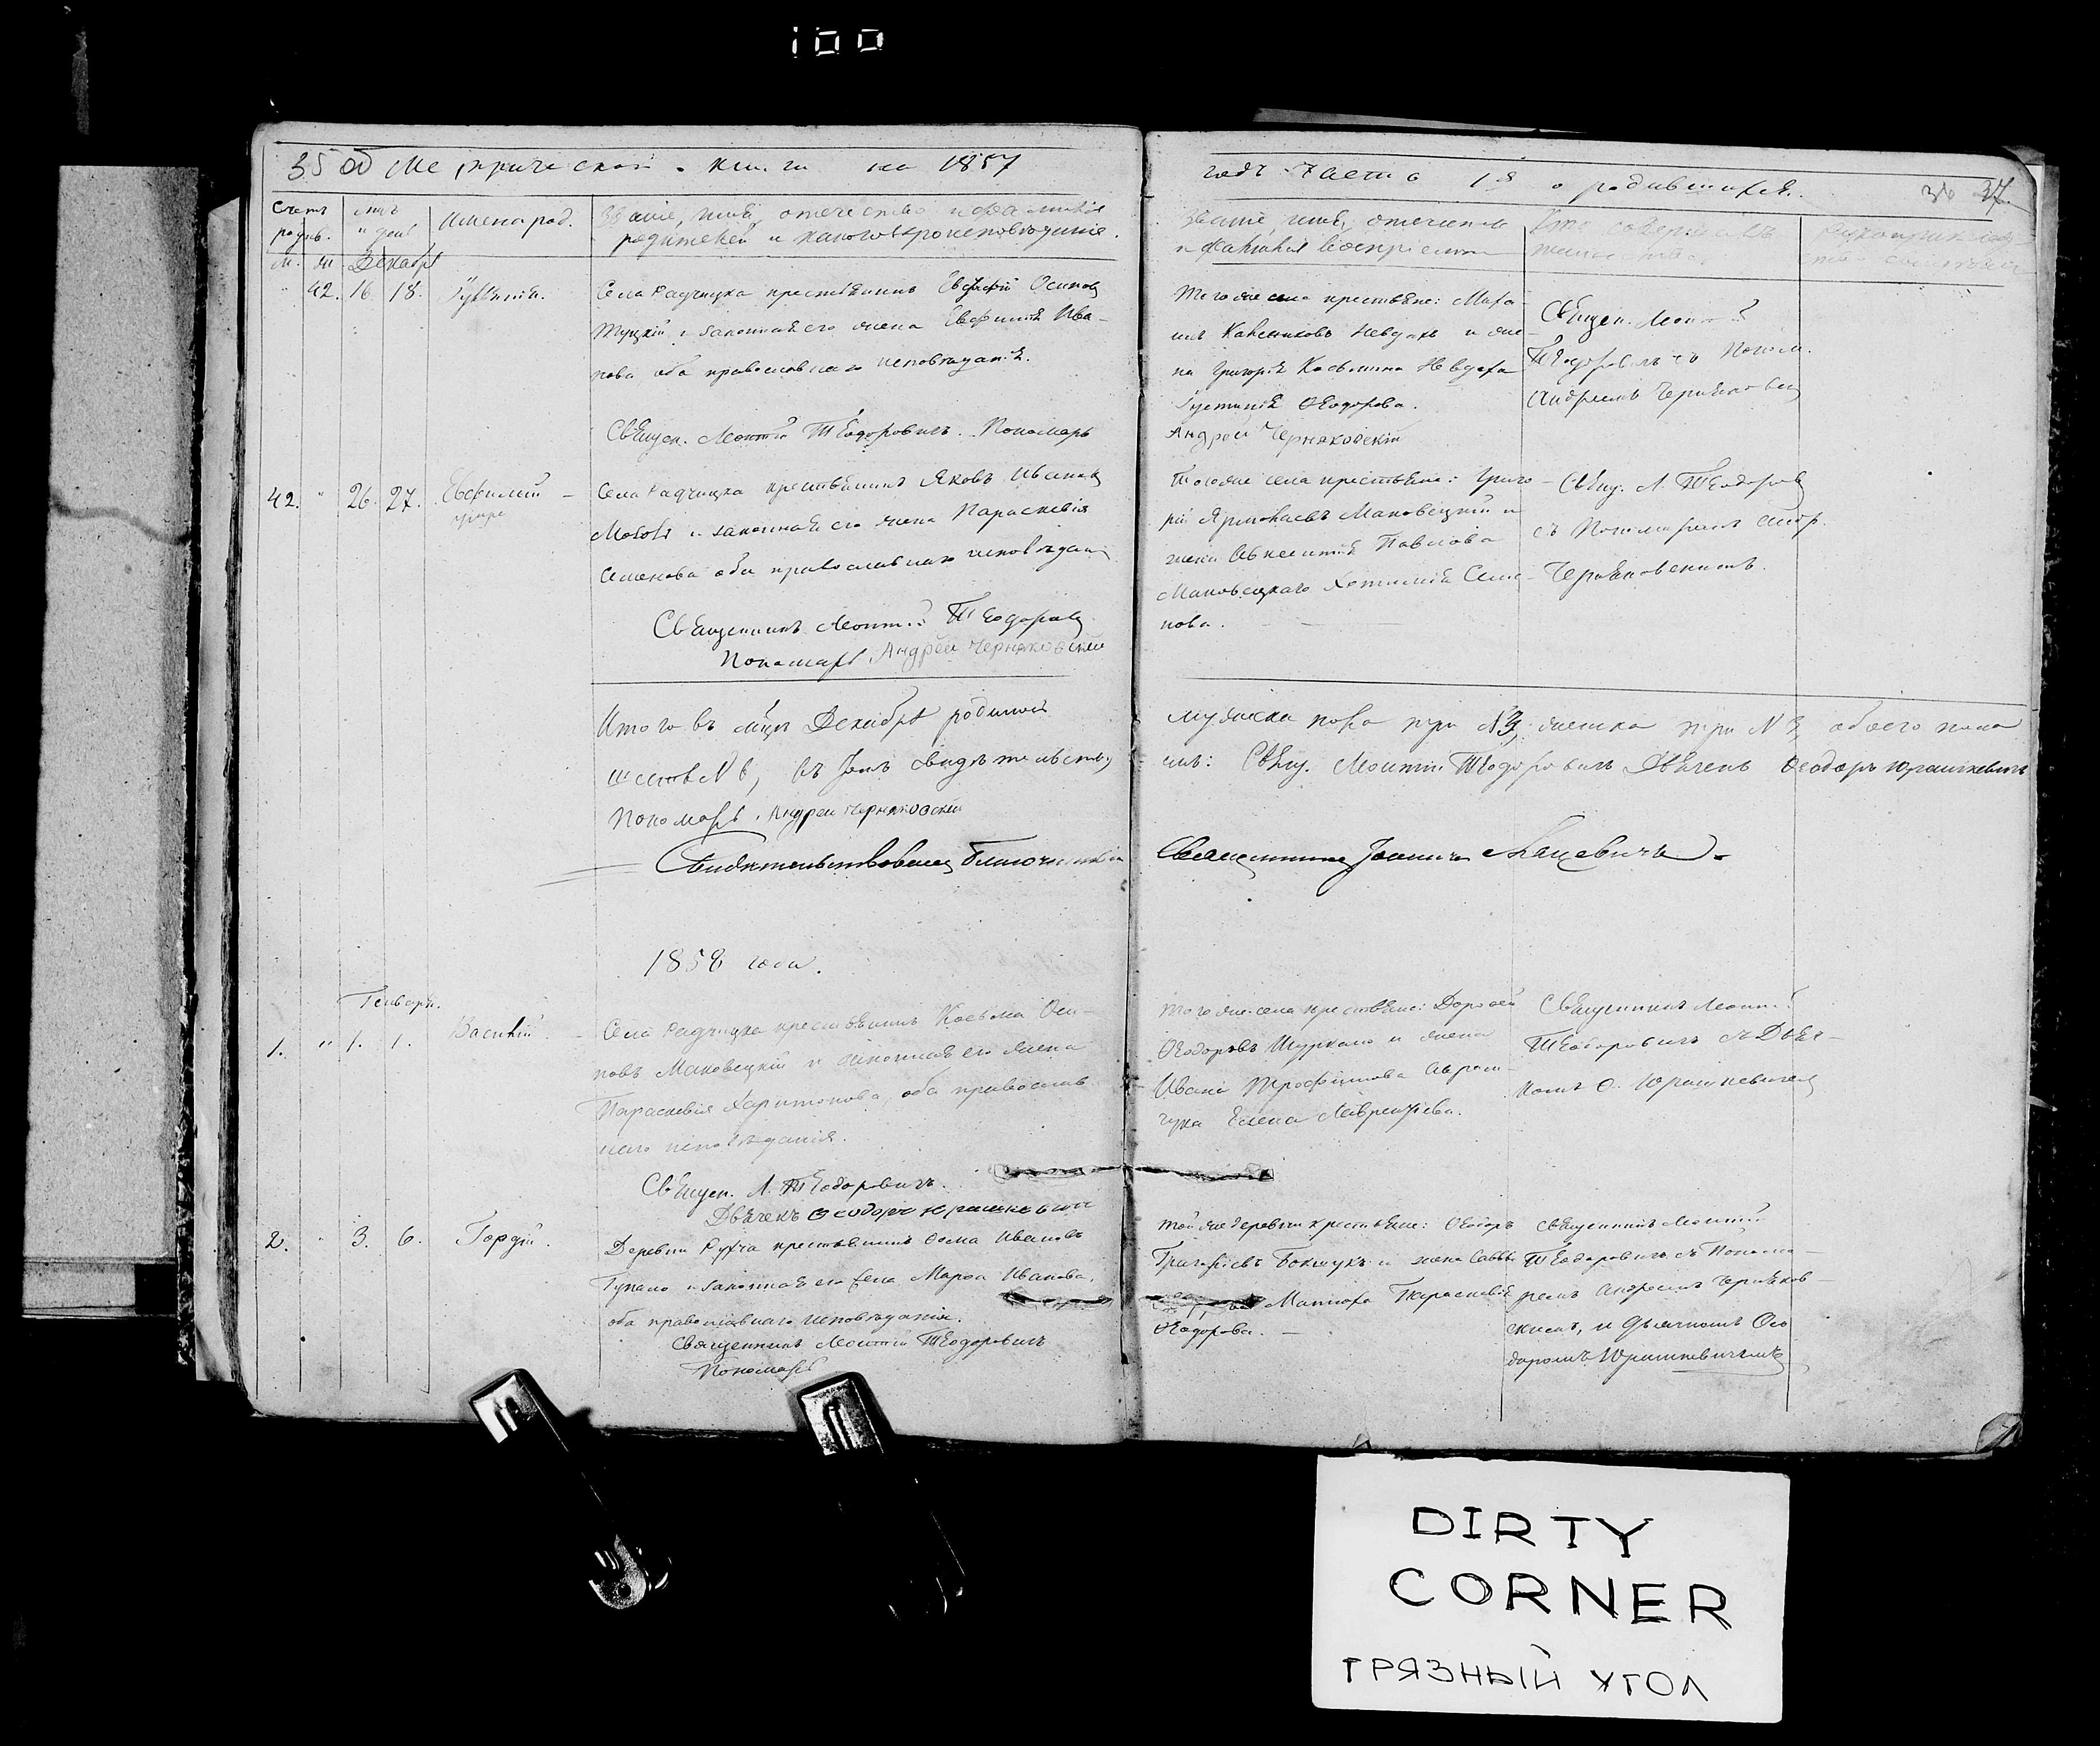 100
35 об Метрической книги на 1857
годъ часть 1я о родившихся.
36 37.
Счетъ родив.
мць и день
Имена род.
Званіе, имя, отечество и фамилія
родителей и какого вѣроисповѣданія.
Званіе, имя, отечество
и фамилія воспріемн
Кто совершалъ
таинство
М. Ж. Декабря
42. 16. 18.
Села Радчицка крестьянинъ Осиповъ
и законная его жена Евфимія Ива-
нова оба православнаго исповѣданія.
Священ. Леонтій Тѣодоровичъ. Пономарь
Того же села крестьяне:
и же-
на Григорія Косьмина Невдаха
Іустинія Ѳеодорова.
Андрей Черняковскій
Священ. Леонтій
Тѣодоровичъ съ Поном.
Андреемъ Черняковским
42. " 26. 27. Евфимій
умре
Села Радчицка крестьянинъ Яковъ Ивановъ
и законная его жена Параскевія
Семенова оба православнаго исповѣдан
Священникъ Леонтій Тѣодоров
Пономарь Андрей Черняковскій
Того же села крестьяне: Григо-
рій Маковецкій и
жена Павлова
Маковецкаго Семе-
нова.
Свящ. Л. Тѣодоров
съ Пономаремъ Андр.
Черняковскимъ.
Итого въ мцѣ Декабрѣ родилось
мужеска пола три №3, женска три №3, обоего пола
шесть №6, въ томъ свидѣтельству
емъ: Свящ. Леонтій Тѣодоровичъ Дьячекъ Ѳеодоръ Юрашкевичъ
Пономарь Андрей Черняковскій
Свидѣтельствовалъ Благочинный
Священникъ Іоаннъ Мацевичъ
1858 года.
Генварь.
1. " 1. 1. Василій
Села Радчицка крестьянинъ Косьма Оси-
повъ Маковецкій и законная его жена
Параскевія Харитонова, оба православ
наго исповѣданія.
Священ. Л. Тѣодоровичъ.
Дьячекъ Ѳеодоръ Юрашкевичъ
Того же села крестьяне: Дороѳей
Ѳеодоровъ и жена
Ивана Трофимова Аврам-
чука Елена Лаврентіева.
Священникъ Леонтій
Тѣодоровичъ съ Дьяч-
комъ Ѳ. Юрашкевичем
2. " 3. 6. Гордій.
Деревни крестьянинъ Ѳома Ивановъ
и законная его жена Марѳа Иванова,
оба православнаго исповѣданія.
Священникъ Леонтій Тѣодоровичъ
Пономарь
Той же деревни крестьяне: Ѳеодоръ
Григорьевъ и жена Саввы
Параскевія
Ѳеодорова.
Священникъ Леонтій
Тѣодоровичъ съ Понома-
ремъ Андреемъ Черняков-
скимъ, и Дьячкомъ Ѳео
доромъ Юрашкевичемъ
DIRTY
CORNER
ГРЯЗНЫЙ УГОЛ